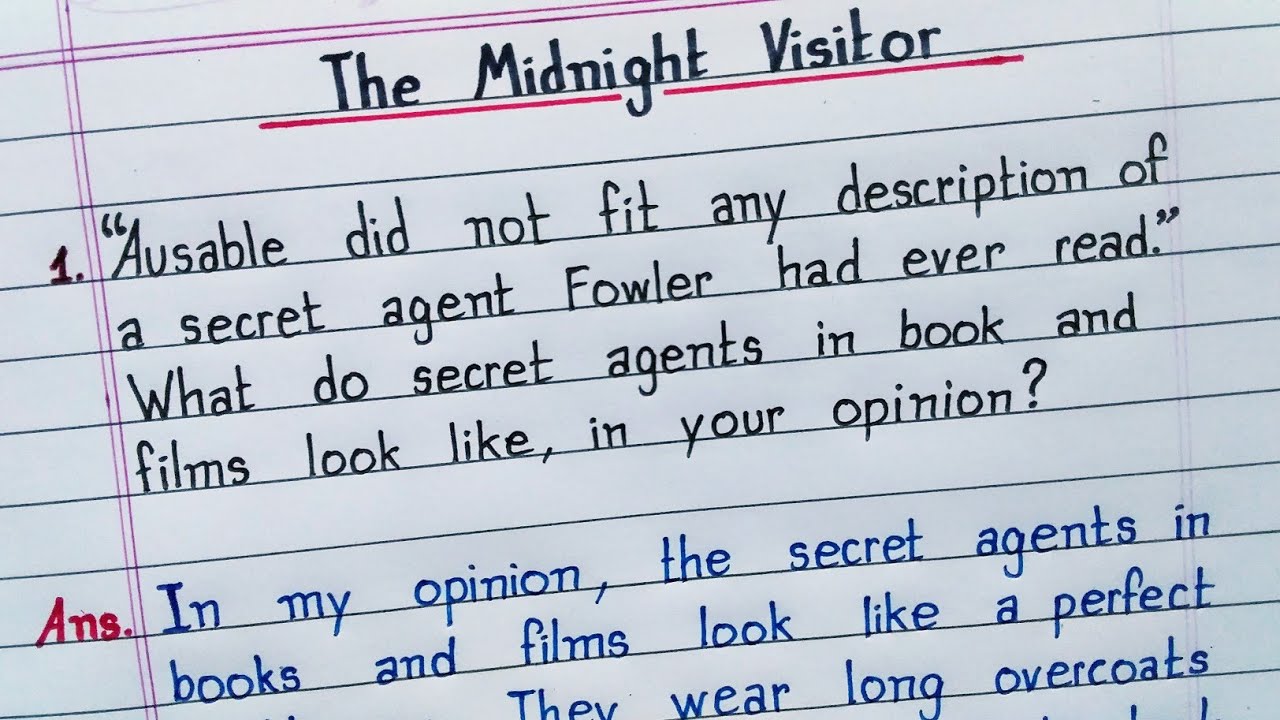 The Midnight Visitor
1. “Ausable did not fit any description of
a secret agent Fowler had ever read.”
What do secret agents in book and
films look like, in your opinion?
Ans. In my opinion, the secret agents in
books and films look like a perfect
They wear long overcoats